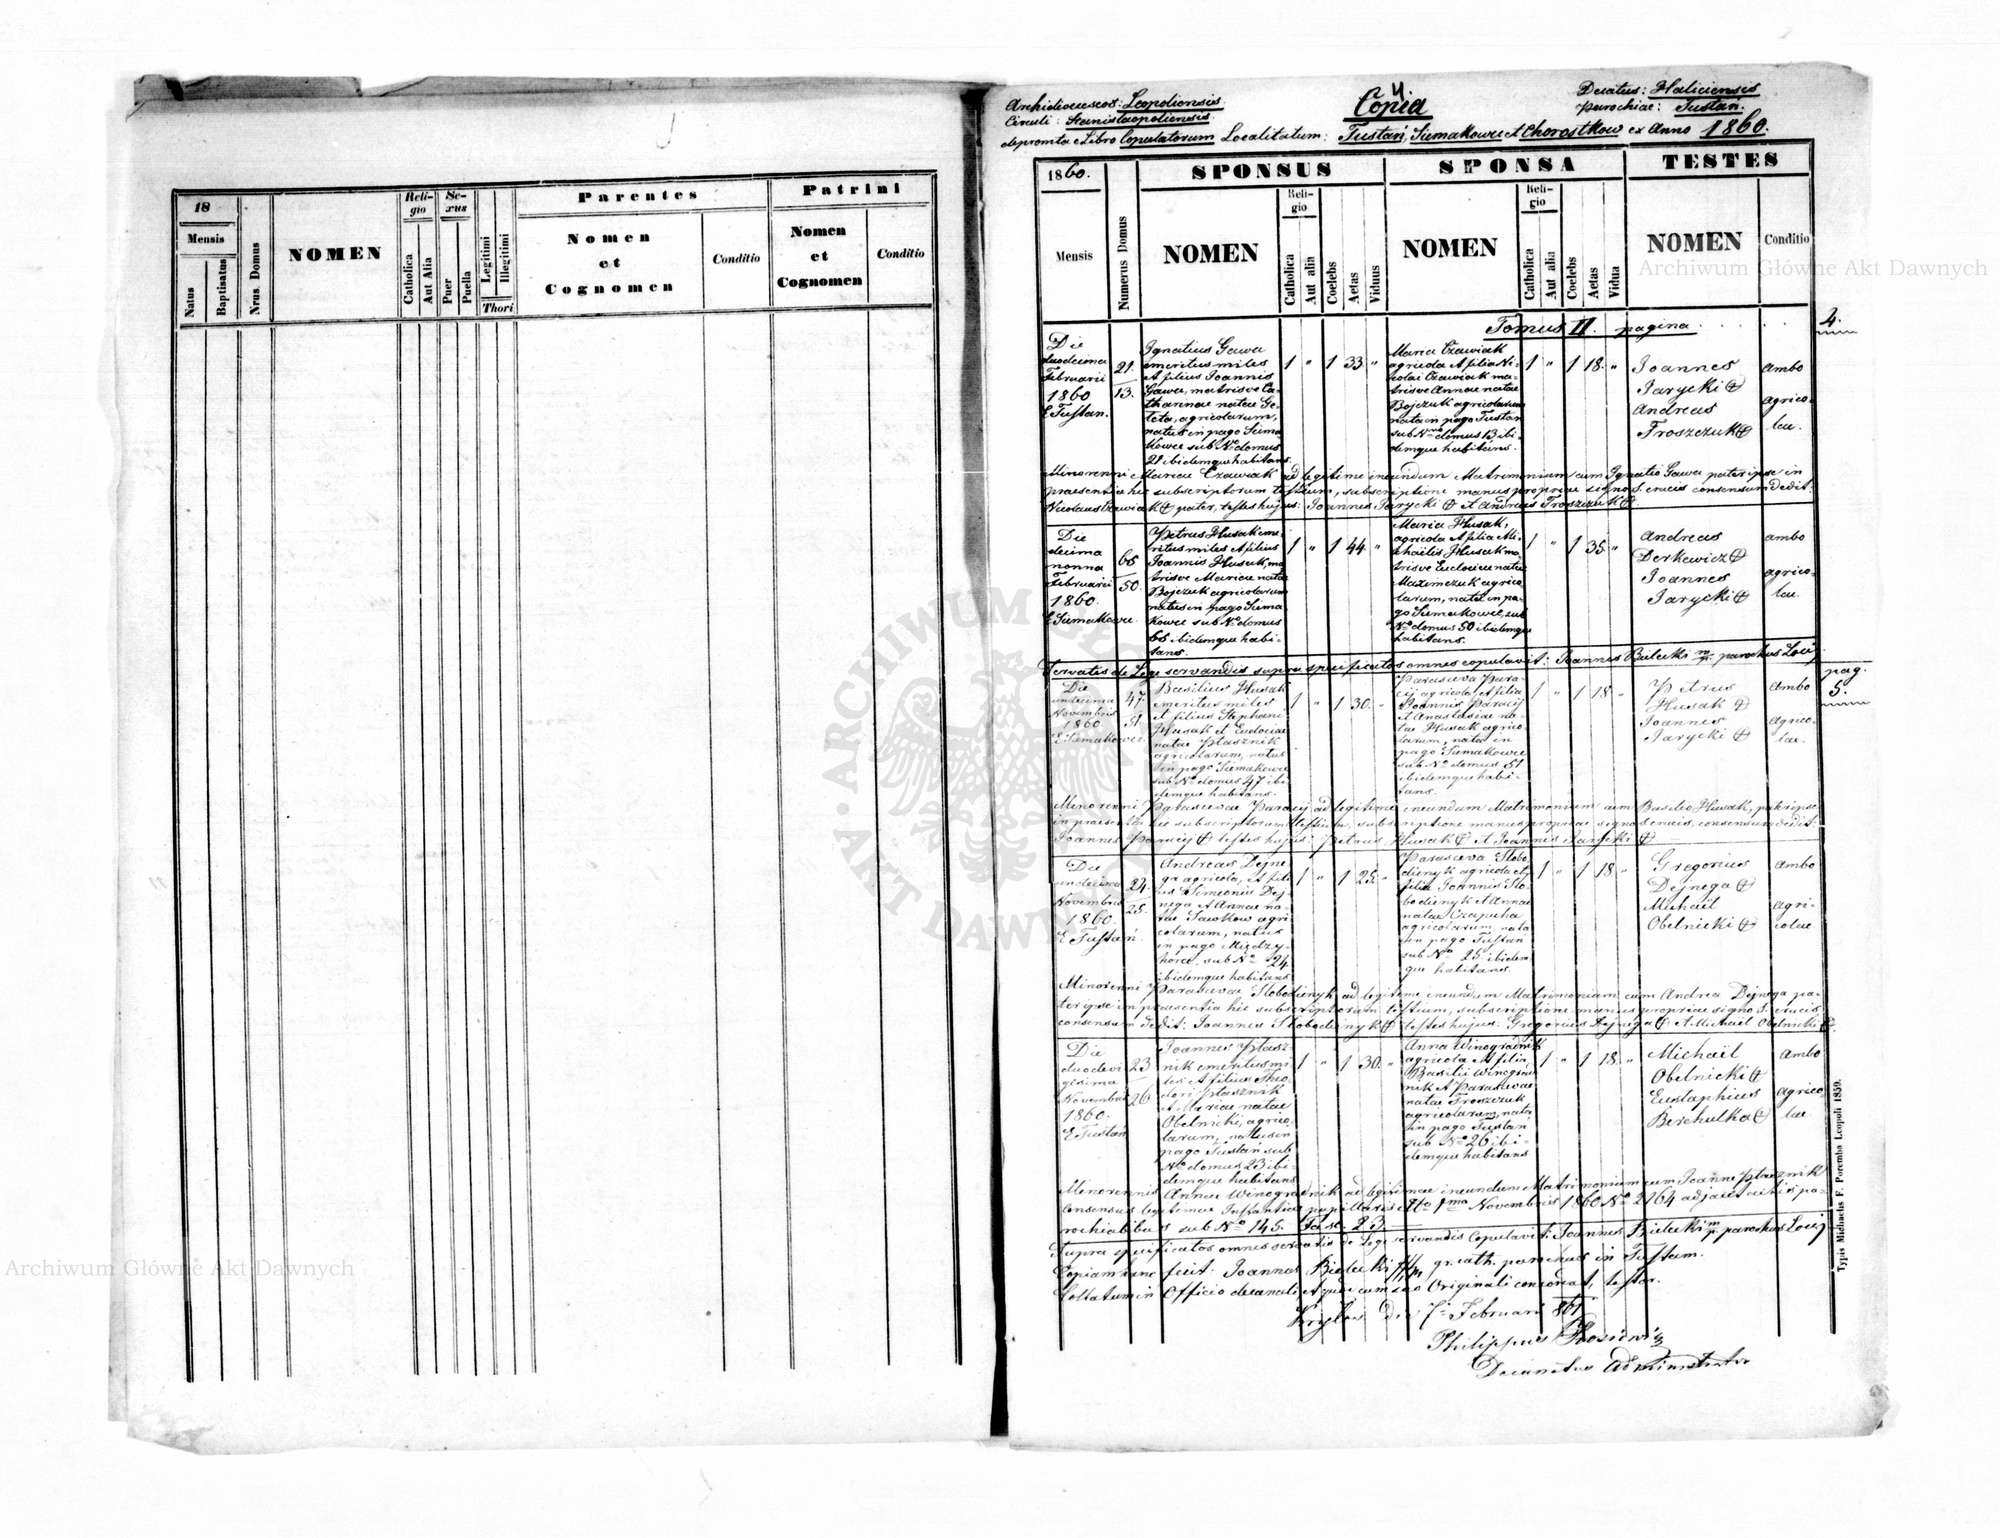 18
Mensis
Natus
Baptisatus
Nrus. Domus
NOMEN
Reli-
gio
Catholica
Aut Alia
Se-
xus
Puer
Puella
Legitimi
Illegitimi
Thori
Parentes
Nomen
et
Cognomen
Conditio
Patrini
Nomen
et
Cognomen
Conditio
Archidioeceseos: Leopoliensis
Circuli: Stanislaopoliensis.
4.
Copia
Decatus: Haliciensis
Parochiae: Tustań.
depromta e Libro Copulatorum Localitatum: Tustań, Siemakowce et Chorostkow ex Anno 1860.
1860.
SPONSUS
SPONSA
TESTES
Mensis
Numerus Domus
NOMEN
Reli-
gio
Catholica
Aut alia
Coelebs
Aetas
Viduus
NOMEN
Reli-
gio
Catholica
Aut alia
Coelebs
Aetas
Vidua
NOMEN
Conditio
Tomus II. pagina . . . . . 4.
Die
duodecima
Februarii
1860
E Tustań.
21.
13.
Ignatius Gawa
emeritus miles
et filius Joannis
Gawa, matrisve Ca-
tharinae natae
agricolarum,
natus in pago Siema-
kowce sub No domus
21 ibidemque habitans.
1 " 1 33 "
Maria Czawiak
agricola et filia Ni-
colai Czawiak ma-
trisve Annae natae
Bojczuk agricolarum
nata in pago Tustań
sub Nro domus 13 ibi-
demque habitans.
1 " 1 18. "
Joannes
Jarycki
Andreas
Froszczuk
ambo
agrico-
lae.
Minorenni Mariae Czawiak ad legitime ineundum Matrimonium cum Ignatio Gawa pater ipse in
praesentia hic subscriptorum testium, subscriptione manus propriae signo S. crucis consensum dedit:
Nicolaus Czawiak pater, testes hujus: Joannes Jarycki et Andreas Froszczuk
Die
decima
nonna
Februarii
1860.
E Siemakowce.
66
50.
Petrus Husak eme-
ritus miles et filius
Joannis Husak, ma-
trisve Mariae natae
Bojczuk agricolarum
natus in pago Siema-
kowce sub No domus
66 ibidemque habi-
tans.
1 " 1 44. "
Maria Husak,
agricola et filia Mi-
chaëlis Husak ma-
trisve Eudociae natae
Maximczuk agrico-
larum, nata in pa-
go Siemakowce, sub
No domus 50 ibidemque
habitans.
1 " 1 35 "
Andreas
Derkewicz
Joannes
Jarycki
ambo
agrico-
lae.
Servatis de Lege servandis supra specificatos omnes copulavit: Joannes Bielecki mp. parochus Loci.
pag.
5.
Die
undecima
Novembris
1860.
E Siemakowce.
47.
51.
Basilius Husak
emeritus miles
et filius Stephani
Husak et Eudociae
natae Ptasznik
agricolarum, natus
in pago Siemakowce
sub No domus 47 ibi-
demque habitans.
1 " 1 30. "
Parasceva Para-
cij agricola, et filia
Joannis Paracij
et Anastasiae na-
tae Husak agrico-
larum, nata in
pago Siemakowce
sub No domus 51
ibidemque habi-
tans.
1 " 1 18 "
Petrus
Husak
Joannes
Jarycki
Ambo
agrico-
lae.
Minorenni Parascevae Paracij ad legitime ineundum Matrimonium cum Basilio Husak, pater ipse
in praesentia hic subscriptorum testium, subscriptione manus propriae signo S. crucis, consensum dedit:
Joannes Paracij testes hujus: Petrus Husak et Joannes Jarycki
Die
undecima
Novembris
1860.
E Tustań.
24.
25.
Andreas Dejne-
ga agricola, et fili-
us Simeonis Dej-
nega et Annae na-
tae Sawkow agri-
colarum, natus
in pago Między-
horce, sub No 24
ibidemque habitans
1 " 1 25. "
Parasceva Słobo-
dienyk agricola et
filia Joannis Sło-
bodienyk et Annae
natae Czapuha
agricolarum, nata
in pago Tustań
sub No 25 ibidem-
que habitans.
1 " 1 18 "
Gregorius
Dejnega
Michaël
Obelnicki
Ambo
agri-
colae
Minorenni Parascevae Słobodienyk ad legitime ineundum Matrimonium cum Andrea Dejnega pa-
ter ipse in praesentia hic subscriptorum testium, subscriptione manus propriae signo S. crucis
consensum dedit: Joannes Słobodienyk testes hujus: Gregorius Dejnega et Michaël Obelnicki
Die
duodevi
gesima
Novembris
1860.
E Tustań
23
26
Joannes Ptasz-
nik emeritus mi-
les et filius Theo-
dori Ptasznik
et Mariae natae
Obelnicki, agrico-
larum, natus in
pago Tustań sub
No domus 23 ibi-
demque habitans
1 " 1 30. "
Anna Winogradnik
agricola et filia
Basilii Winograd-
nik et Parascevae
natae Froszczuk
agricolarum, nata
in pago Tustań
sub No 26 ibi-
demque habitans
1 " 1 18. "
Michaël
Obelnicki
Eustaphius
Berehulka
Ambo
agrico-
lae.
Minorennis Annae Winogradnik ad legitimae ineundum Matrimonium cum Joanne Ptasznik
consensus legitimae Instantiae pupillaris dto 1ma Novembris 1860 No 2764 adjacet actis pa-
rochialibus sub No 145. Fasc. 23.
Supra specificatos omnes servatis de Lege servandis Copulavit: Joannes Bielecki mp. parochus Loci
Copiam hanc fecit Joannes Bielecki gr. cath. parochus in Tustań.
Collatum in Officio decanali, et quod cum suo Originali concordat, testor.
Kryłos die 7a Februarii 861
Philippus
Decanatus administrator
Typis Michaelis F. Poremba Leopoli 1859.
Archiwum Główne Akt Dawnych
Archiwum Główne Akt Dawnych
ARCHIWUM GŁÓWNE AKT DAWNYCH